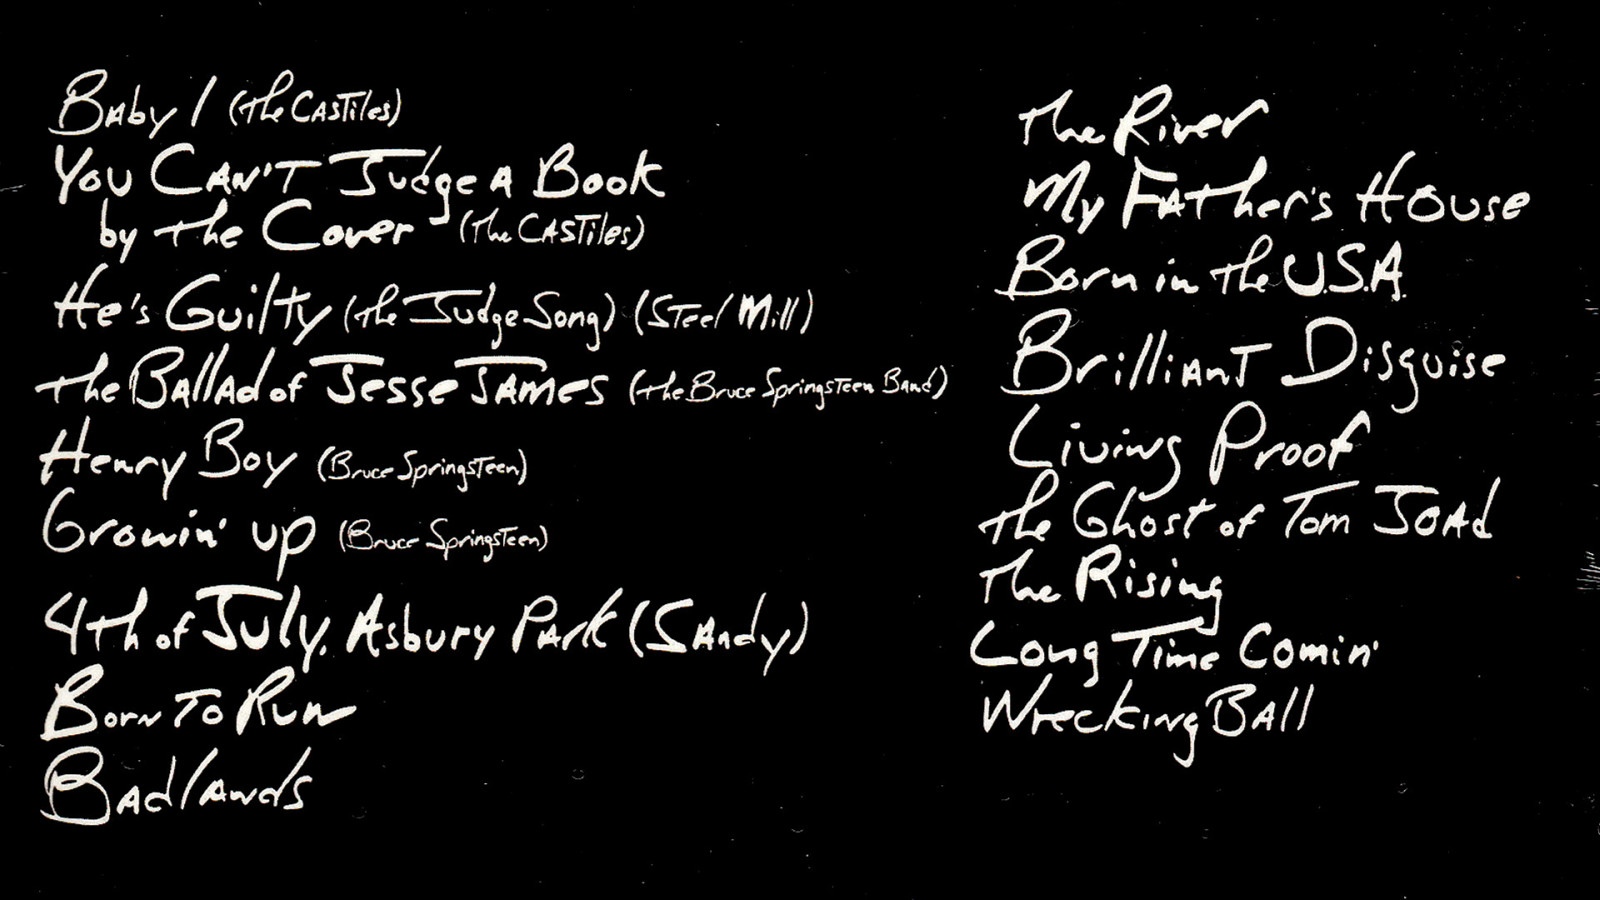 Baby I (The Castiles)
You Can't Judge a Book
by the Cover (The Castiles)
He's Guilty (The Judge Song) (Steel Mill)
The Ballad of Jesse James (The Bruce Springsteen Band)
Henry Boy (Bruce Springsteen)
Growin' up (Bruce Springsteen)
4th of July, Asbury Park (Sandy)
Born To Run
Badlands
The River
My Father's House
Born in the U.S.A.
Brilliant Disguise
Living Proof
The Ghost of Tom Joad
The Rising
Long Time Comin'
Wrecking Ball